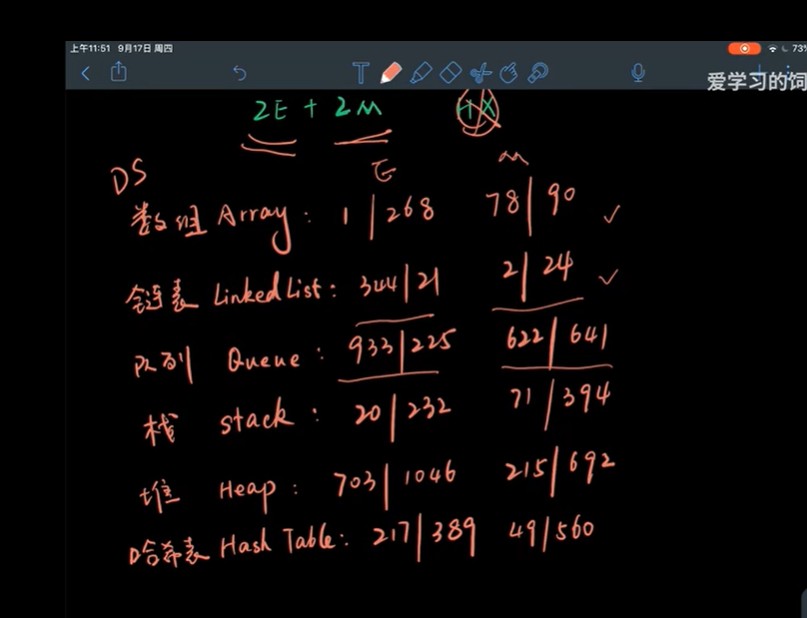 上午11:51 9月17日 周四
73%
爱学习的词
2E + 2M HX
E M
DS
数组 Array: 1|268 78|90 ✓
链表 LinkedList: 344|21 2|24 ✓
队列 Queue: 933|225 622|641
栈 stack: 20|232 71|394
堆 Heap: 703|1046 215|692
哈希表 Hash Table: 217|389 49|560